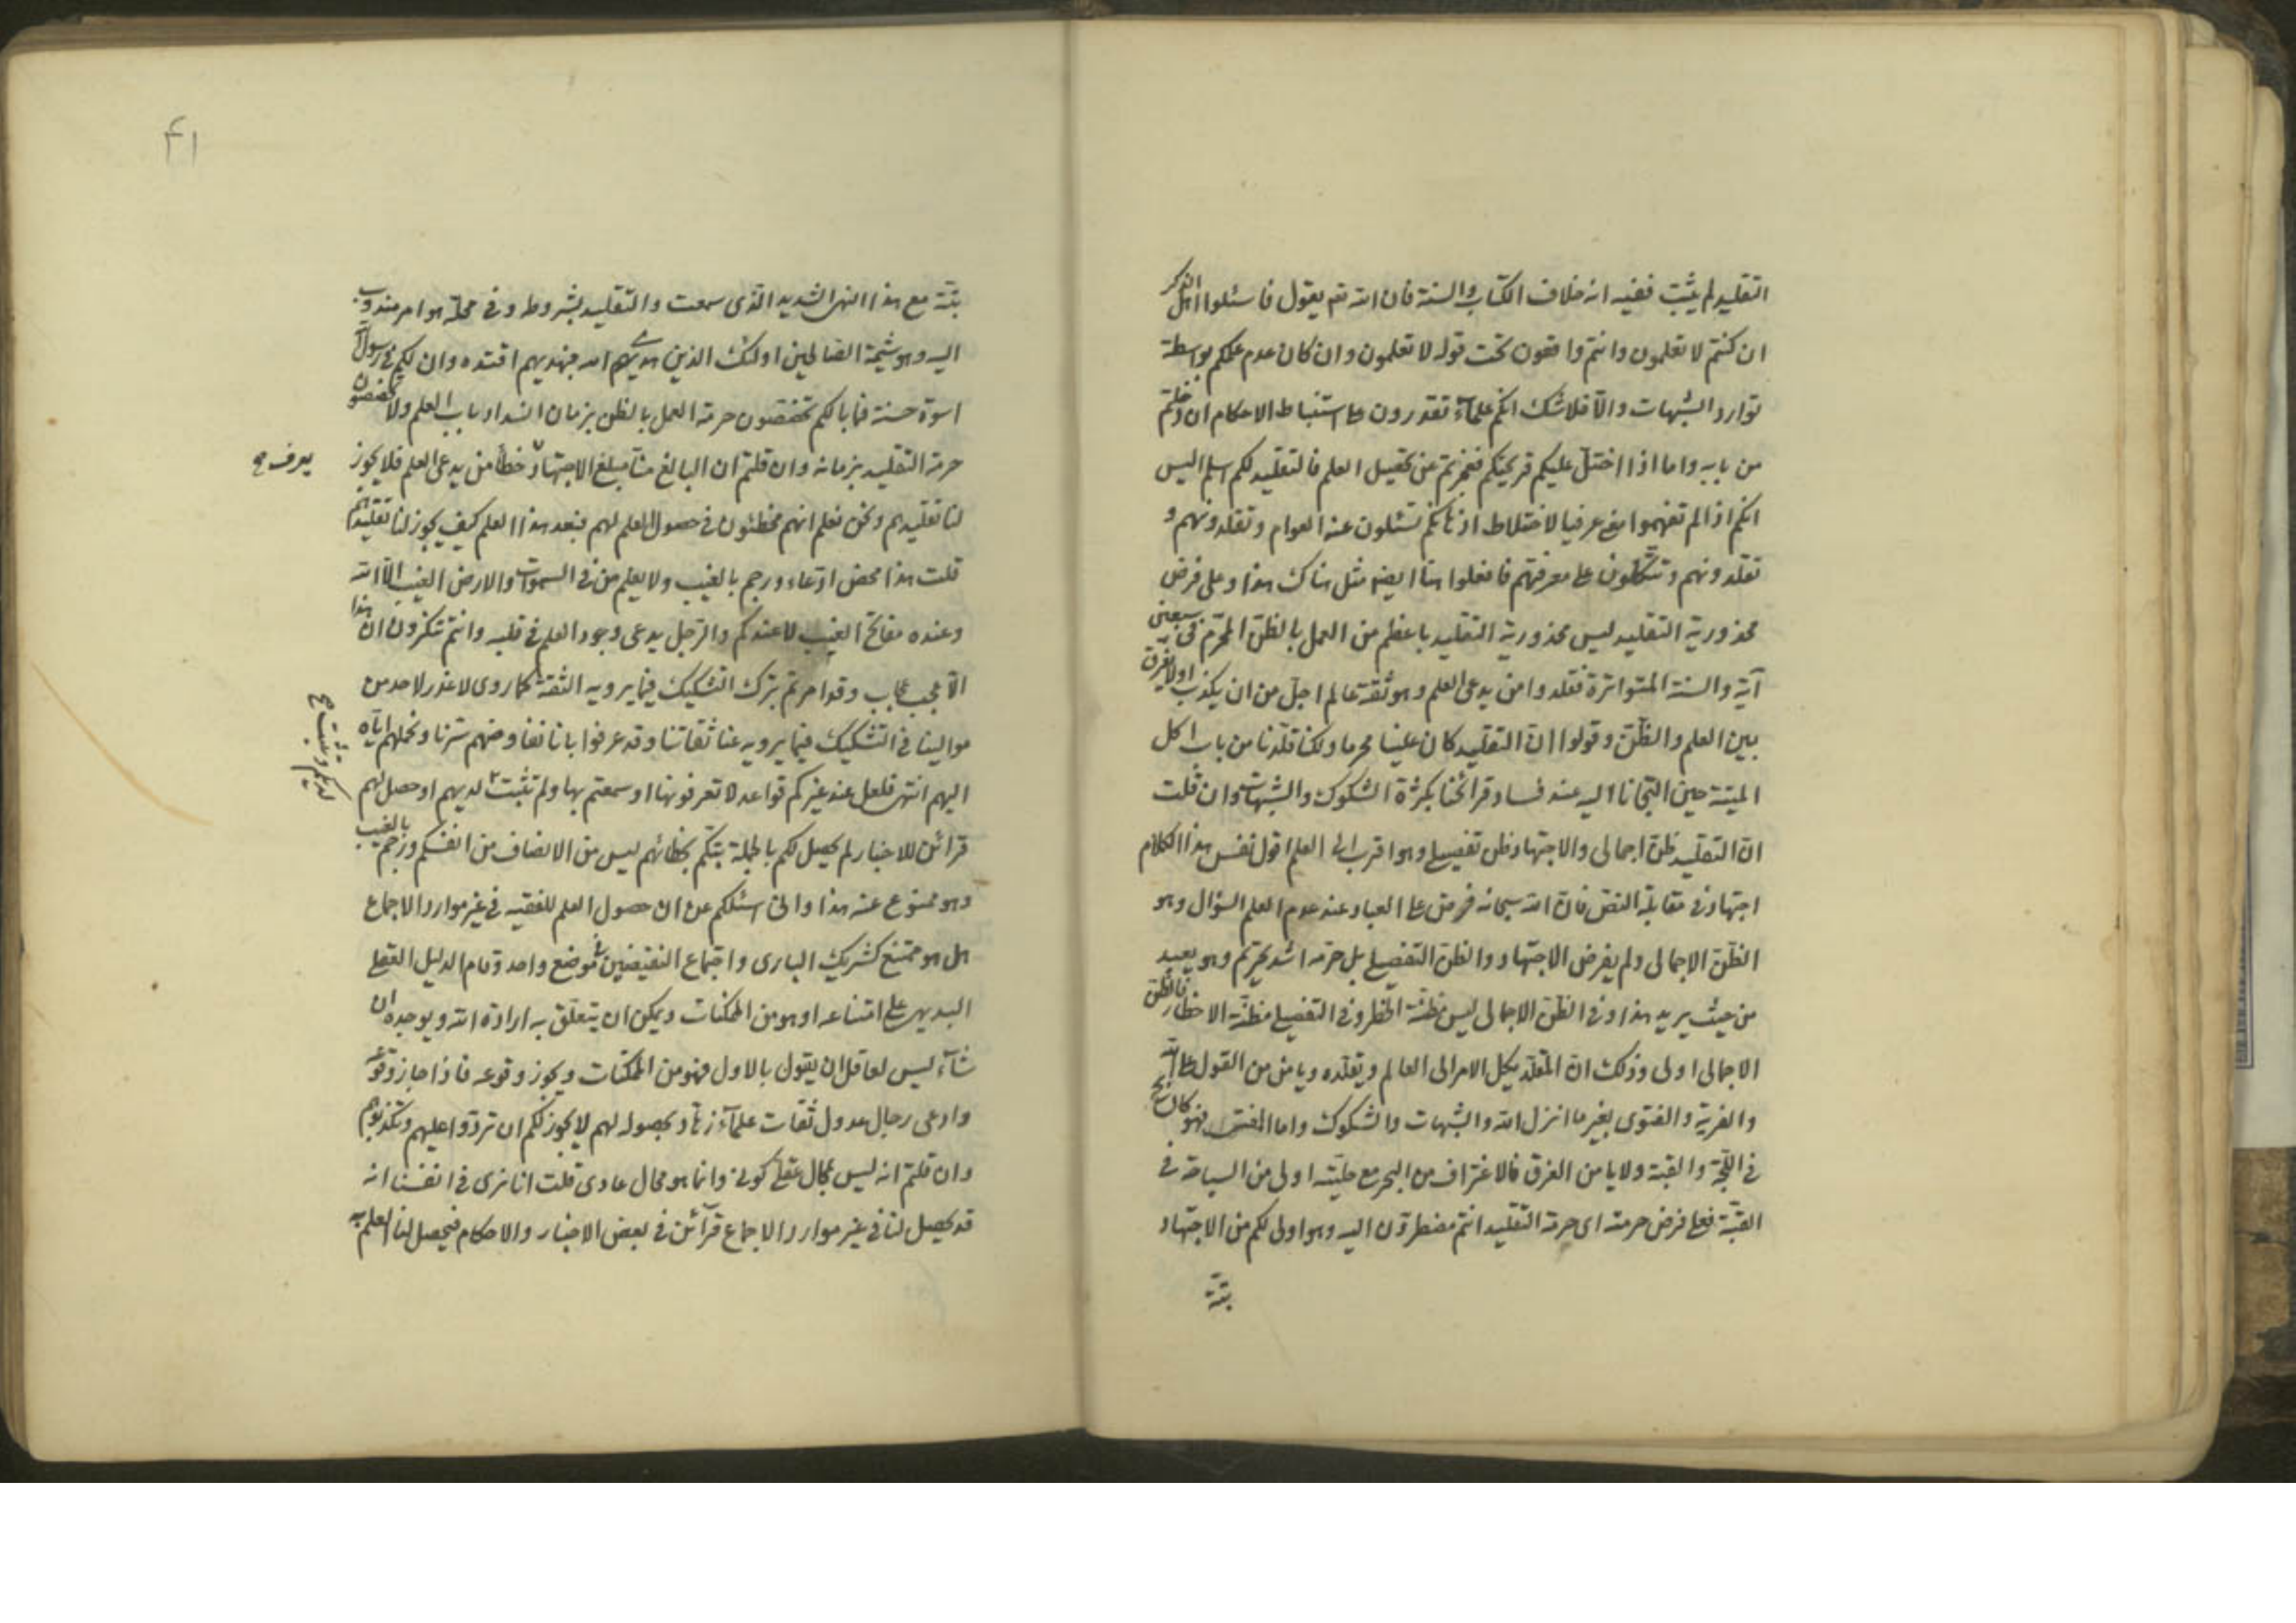 التقليد لم يثبت ففيه انه خلاف الكتاب والسنة فان الله تعم يقول فاسئلوا اهل الذكر
ان كنتم لا تعلمون وانتم واقفون تحت قوله لا تعلمون وان كان عدم علمكم بواسطة
توارد الشبهات والّا فلا شك انكم علمآء تقدرون على استنباط الاحكام ان دخلتم
من بابه واما اذا اختلّ عليكم قريحتكم فعجزتم عن تحصيل العلم فالتقليد لكم اسلم اليس
انكم اذا لم تفهموا معنى عرفيا لاختلاط اذهانكم تسئلون عنه العوام و تقلدونهم و
تقلدونهم وتتكلون على معرفتهم فافعلوا هنا ايضا مثل هناك هذا وعلى فرض
محذورية التقليد ليس محذورية التقليد باعظم من العمل بالظن المحرّم فى سبعين
آية والسنة المتواترة فقلدوا من يدعى العلم وهو ثقة عالم اجلّ من ان يكذب اولا يفرق
بين العلم والظنّ وقولوا انّ التقليد كان علينا محرما ولكنا قلّدنا من باب اكل
الميتة حين التجانا اليه عند فساد قرائحنا بكثرة الشكوك والشبهات وان قلت
انّ التقليد ظنّ اجمالى والاجتهاد ظن تفصيلى وهو اقرب الى العلم اقول نفس هذا الكلام
اجتهاد فى مقابلة النصّ فانّ الله سبحانه فرض على العباد عند عدم العلم السؤال وهو
الظنّ الاجمالى ولم يفرض الاجتهاد والظن التفصيلى بل حرّمه اشد تحريم وهو يعبد
من حيث يريد هذا وفى الظنّ الاجمالى ليس مظنّة الخطر وفى التفصيلى مظنّة الاخطار فالظنّ
الاجمالى اولى وذلك انّ المقلّد يكل الامر الى العالم ويقلّده ويامن من القول على الله
والفرية والفتوى بغير ما انزل الله والشبهات والشكوك واما المفتى فهو كان يسبح
فى اللّجّة والقبّة ولا يامن الغرق فالاغتراف من البحر مع حليّته اولى من السباحة فى
القبّة فعلى فرض حرمته اى حرمة التقليد انتم مضطرّون اليه وهو اولى لكم من الاجتهاد
بتّة
۴۱
بتّة مع هذا النهى الشديد الّذى سمعت والتقليد بشروطه وفى محلّه هو امر مندوب
اليه وهو شيمة الصالحين اولئك الذين هديهم الله فبهديهم اقتده وان لكم فى رسول الله
اسوة حسنة فما بالكم تخصّصون حرمة العمل بالظن بزمان انسداد باب العلم ولا تخصّصون
حرمة التقليد بزمانه وان قلتم ان البالغ منّا مبلغ الاجتهاد خطأ من يدعى العلم فلا يجوز
يعرف صح
لنا تقليدهم ونحن نعلم انهم مخطئون فى حصول العلم لهم فبعد هذا العلم كيف يجوز لنا تقليدهم
قلت هذا محض ادّعاء ورجم بالغيب ولا يعلم من فى السموات والارض الغيب الّا الله
وعنده مفاتح الغيب لا عندكم والرّجل يدعى وجود العلم فى قلبه وانتم تنكرون ان هذا
الّا عجب عجاب وقد امرتم بترك التشكيك فيما يرويه الثقة كما روى لا عذر لاحد من
موالينا فى التشكيك فيما يرويه عنا ثقاتنا وقد عرفوا بانا نفاوضهم سرّنا ونحملهم ايّاه
اليهم انتهى فلعل عند غيركم قواعد لا تعرفونها او سمعتم بها ولم تثبت لديهم او حصل لهم
لديكم وثبت صح
قرائن للاخبار لم يحصل لكم بالجملة بتّكم بخطائهم ليس من الانصاف من انفسكم ورجم بالغيب
وهو ممنوع عنه هذا وانى اسئلكم عن ان حصول العلم للفقيه فى غير موارد الاجماع
هل هو ممتنع كشريك البارى واجتماع النقيضين فى موضع واحد وقام الدليل العقلى
البديهى على امتناعه او هو من الممكنات ويمكن ان يتعلّق به ارادة الله ويوجده ان
شآء ليس لعاقل ان يقول بالاول فهو من الممكنات ويجوز وقوعه فاذا جاز وقوعه
وادعى رجال عدول ثقات علمآء زهّاد بحصوله لهم لا يجوز لكم ان تردّوا عليهم وتكذبوهم
وان قلتم انه ليس بمحال عقلى كونى وانما هو محال عادى قلت انا نرى فى انفسنا انه
قد يحصل لنا فى غير موارد الاجماع قرآئن فى بعض الاخبار والاحكام فيحصل لنا العلم به